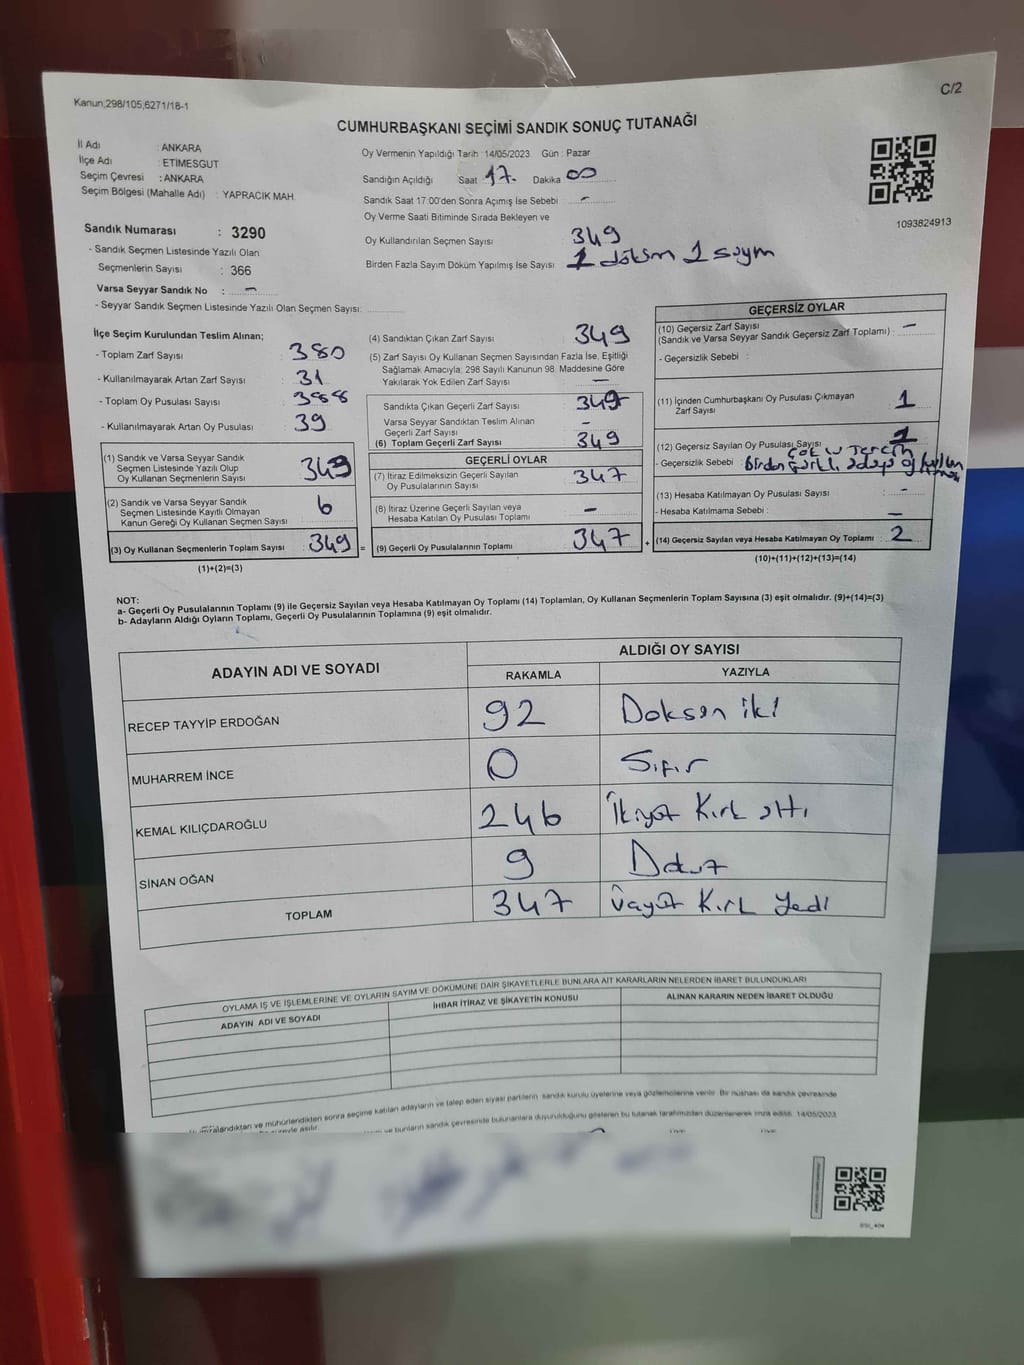 C/2
Kanun;298/105;6271/18-1
CUMHURBAŞKANI SEÇİMİ SANDIK SONUÇ TUTANAĞI
İl Adı : ANKARA
İlçe Adı : ETİMESGUT
Seçim Çevresi : ANKARA
Seçim Bölgesi (Mahalle Adı) : YAPRACIK MAH.
Sandık Numarası : 3290
- Sandık Seçmen Listesinde Yazılı Olan
Seçmenlerin Sayısı : 366
Varsa Seyyar Sandık No : -
- Seyyar Sandık Seçmen Listesinde Yazılı Olan Seçmen Sayısı:
Oy Vermenin Yapıldığı Tarih :14/05/2023 Gün : Pazar
Sandığın Açıldığı Saat 17. Dakika 00
Sandık Saat 17:00'den Sonra Açımış İse Sebebi : -
Oy Verme Saati Bitiminde Sırada Bekleyen ve
Oy Kullandırılan Seçmen Sayısı 349
Birden Fazla Sayım Döküm Yapılmış İse Sayısı 1 döküm 1 sayım
1093824913
İlçe Seçim Kurulundan Teslim Alınan;
- Toplam Zarf Sayısı : 380
- Kullanılmayarak Artan Zarf Sayısı : 31
- Toplam Oy Pusulası Sayısı : 388
- Kullanılmayarak Artan Oy Pusulası : 39
(1) Sandık ve Varsa Seyyar Sandık
Seçmen Listesinde Yazılı Olup
Oy Kullanan Seçmenlerin Sayısı : 349
(2) Sandık ve Varsa Seyyar Sandık
Seçmen Listesinde Kayıtlı Olmayan
Kanun Gereği Oy Kullanan Seçmen Sayısı : 6
(3) Oy Kullanan Seçmenlerin Toplam Sayısı : 349 =
(1)+(2)=(3)
(4) Sandıktan Çıkan Zarf Sayısı : 349
(5) Zarf Sayısı Oy Kullanan Seçmen Sayısından Fazla İse, Eşitliği
Sağlamak Amacıyla; 298 Sayılı Kanunun 98. Maddesine Göre
Yakılarak Yok Edilen Zarf Sayısı : -
Sandıkta Çıkan Geçerli Zarf Sayısı : 349
Varsa Seyyar Sandıktan Teslim Alınan
Geçerli Zarf Sayısı : -
(6) Toplam Geçerli Zarf Sayısı : 349
GEÇERLİ OYLAR
(7) İtiraz Edilmeksizin Geçerli Sayılan
Oy Pusulalarının Sayısı : 347
(8) İtiraz Üzerine Geçerli Sayılan veya
Hesaba Katılan Oy Pusulası Toplamı : -
(9) Geçerli Oy Pusulalarının Toplamı : 347 +
GEÇERSİZ OYLAR
(10) Geçersiz Zarf Sayısı
(Sandık ve Varsa Seyyar Sandık Geçersiz Zarf Toplamı) : -
- Geçersizlik Sebebi :
(11) İçinden Cumhurbaşkanı Oy Pusulası Çıkmayan
Zarf Sayısı : 1
(12) Geçersiz Sayılan Oy Pusulası Sayısı : 1
- Geçersizlik Sebebi :
(13) Hesaba Katılmayan Oy Pusulası Sayısı : -
- Hesaba Katılmama Sebebi : -
(14) Geçersiz Sayılan veya Hesaba Katılmayan Oy Toplamı : 2
(10)+(11)+(12)+(13)=(14)
NOT:
a- Geçerli Oy Pusulalarının Toplamı (9) ile Geçersiz Sayılan veya Hesaba Katılmayan Oy Toplamı (14) Toplamları, Oy Kullanan Seçmenlerin Toplam Sayısına (3) eşit olmalıdır. (9)+(14)=(3)
b- Adayların Aldığı Oyların Toplamı, Geçerli Oy Pusulalarının Toplamına (9) eşit olmalıdır.
ADAYIN ADI VE SOYADI ALDIĞI OY SAYISI
RAKAMLA YAZIYLA
RECEP TAYYİP ERDOĞAN 92 Doksan iki
MUHARREM İNCE 0 Sıfır
KEMAL KILIÇDAROĞLU 246 İkiyüz Kırk altı
SİNAN OĞAN 9 Dokuz
TOPLAM 347 Üçyüz Kırk Yedi
OYLAMA İŞ VE İŞLEMLERİNE VE OYLARIN SAYIM VE DÖKÜMÜNE DAİR ŞİKAYETLERLE BUNLARA AİT KARARLARIN NELERDEN İBARET BULUNDUKLARI
ADAYIN ADI VE SOYADI İHBAR İTİRAZ VE ŞİKAYETİN KONUSU ALINAN KARARIN NEDEN İBARET OLDUĞU
sonra seçime katılan adayların ve talep eden siyasi partilerin sandık kurulu üyelerine veya gözlemcilerine verilir. Bir nüshası da sandık çevresinde
ve bunların sandık çevresinde bulunanlara duyurulduğunu gösteren bu tutanak tarafımızdan düzenlenerek imza edildi. 14/05/2023